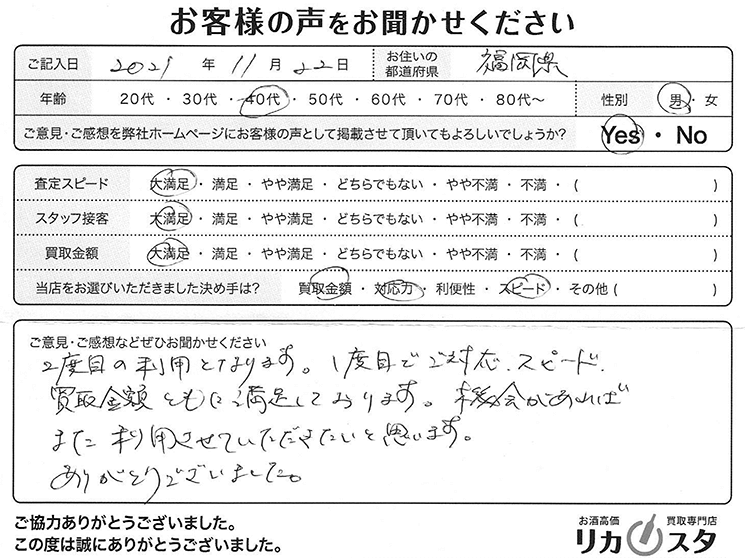 お客様の声をお聞かせください
ご記入日 2021 年 11 月 22 日 お住いの都道府県 福岡県
年齢 20代 ・ 30代 ・ 40代 ・ 50代 ・ 60代 ・ 70代 ・ 80代～ 性別 男 ・ 女
ご意見・ご感想を弊社ホームページにお客様の声として掲載させて頂いてもよろしいでしょうか? Yes ・ No
査定スピード 大満足 ・ 満足 ・ やや満足 ・ どちらでもない ・ やや不満 ・ 不満 ・ ( )
スタッフ接客 大満足 ・ 満足 ・ やや満足 ・ どちらでもない ・ やや不満 ・ 不満 ・ ( )
買取金額 大満足 ・ 満足 ・ やや満足 ・ どちらでもない ・ やや不満 ・ 不満 ・ ( )
当店をお選びいただきました決め手は? 買取金額 ・ 対応力 ・ 利便性 ・ スピード ・ その他 ( )
ご意見・ご感想などぜひお聞かせください
2度目の利用となります。1度目でご対応、スピード、
買取金額ともに満足しております。機会があれば
また利用させていただきたいと思います。
ありがとうございました。
ご協力ありがとうございました。
この度は誠にありがとうございました。
お酒高価 買取専門店
リカスタ